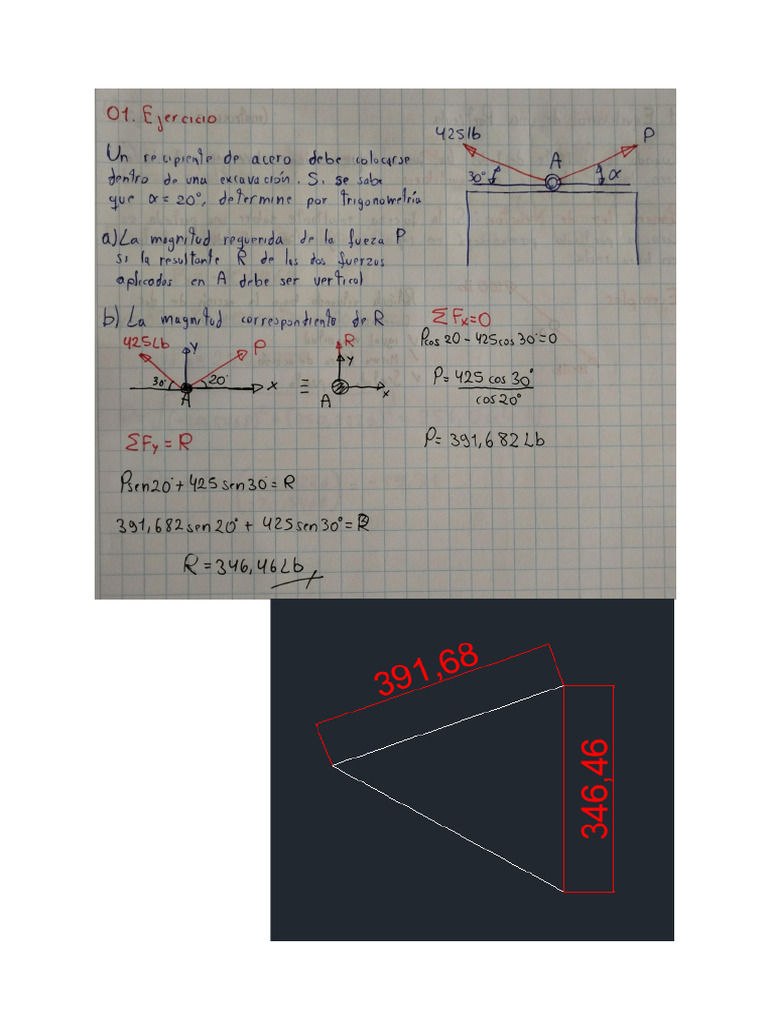 01. Ejercicio
Un recipiente de acero debe colocarse
dentro de una excavación. Si se sabe
que α = 20°, determine por trigonometría
a) La magnitud requerida de la fueza P
si la resultante R de las dos fuerzos
aplicados en A debe ser vertical
b) La magnitud correspondiente de R
425lb
P
A
30°
α
425Lb
y
P
30°
20°
x
A
≡
R
y
x
A
ΣFx=0
Pcos 20 - 425cos 30°=0
P= 425 cos 30°
cos20°
P= 391,682 Lb
ΣFy = R
Psen20° + 425 sen30° = R
391,682 sen 20° + 425 sen 30° = R
R = 346,46Lb
391,68
346,46